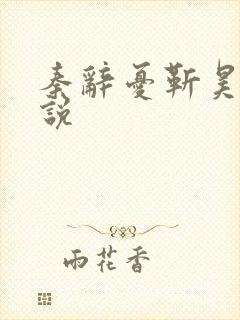 秦辭憂靳昊
說
雨花香